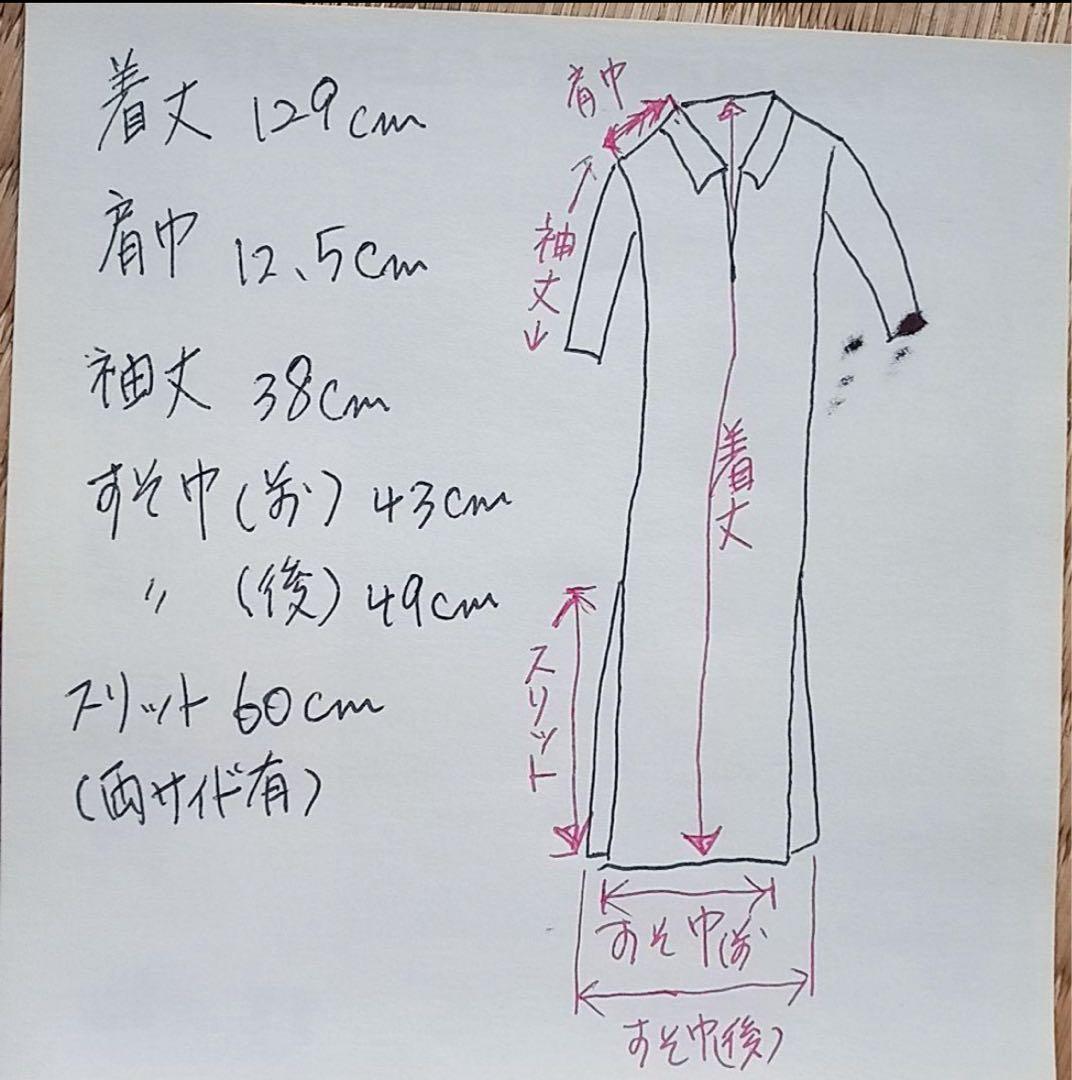 着丈 129cm
肩巾 12.5cm
袖丈 38cm
すそ巾(前) 43cm
〃 (後) 49cm
スリット 60cm
(両サイド有)
肩巾
袖丈
着丈
スリット
すそ巾(前)
すそ巾(後)